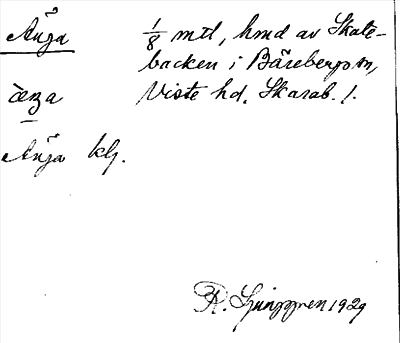 Änga
1/8 mtl, hmd av Skate-
backen i Bärebergs sn,
Viste hd. Skarab. l.
Änga klj.
R. Ljunggren 1929